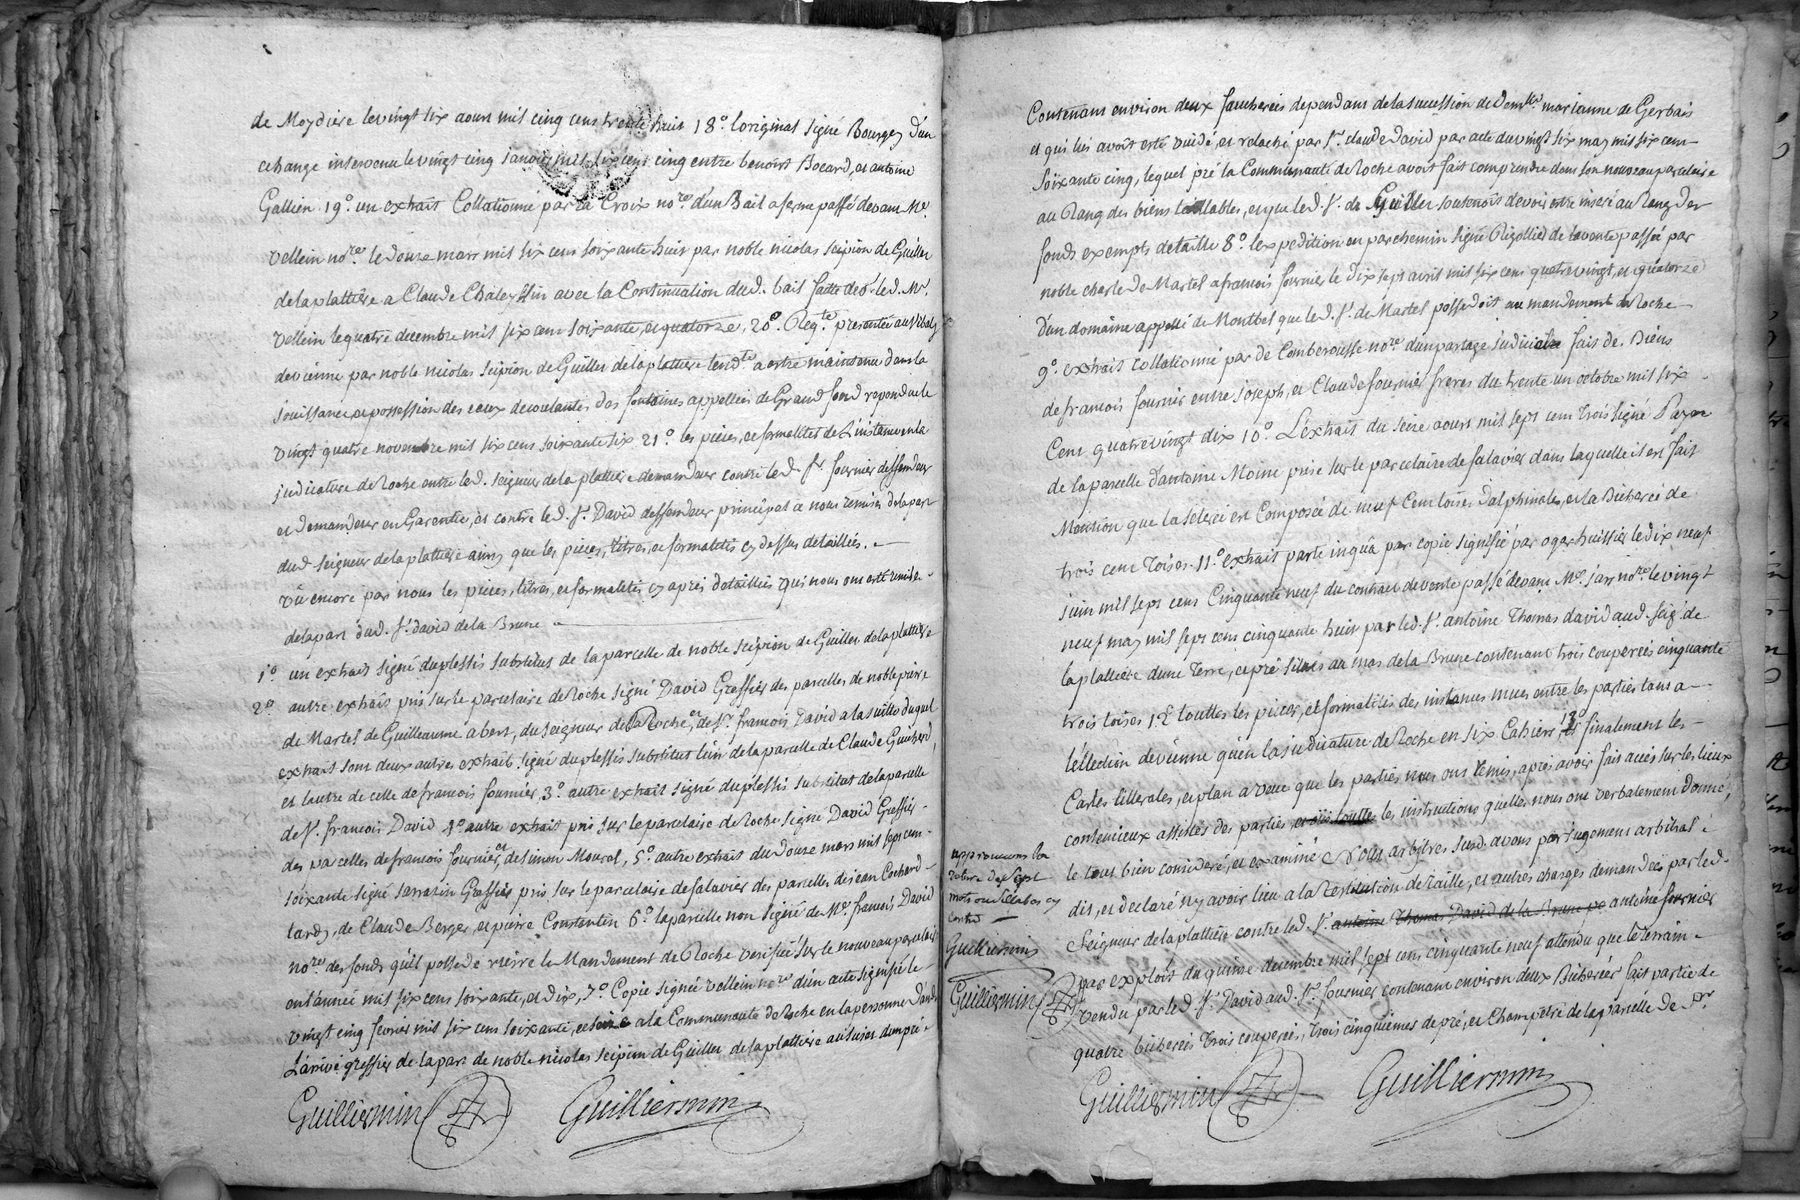 de Moydiere le vingt six aoust mil cinq cens trente huit 18°. loriginal signé Bourgey d'un
echange intervenu le vingt cinq janvier mil six cent cinq entre benoist Bocard, et antoine
Gallien 19°. un extrait Collationné par la Croix no.re d'un Bail a ferme passé devant M.e
Vellein no.re le douze mars mil six cens soixante huit par noble nicolas scipion de Guillet
de la plattiere a Claude Chaley avec la Continuation dud. bail faitte de led. M.e
Vellein le quatre decembre mil six cens soixante, et quatorze, 20°. Req.te presentée au Vibaly
de vienne par noble nicolas scipion de Guillet de la plattiere tend.te a estre maintenu dans la
jouissance, et possession des eaux decoulantes des fontaines appellées de Grand fond repondue le
vingt quatre novembre mil six cens soixante six 21°. les pieces, et formalités de Linstance en la
judicature de Roche entre led. seigneur de la plattiere demandeur contre led. s.r fournier deffendeur
et demandeur en Garentie, et contre led. s.r David deffendeur principal a nous remises de la part
dud. seigneur de la plattiere ainsy que les pieces, titres, et formalités cy dessus detaillés. —
Vû encore par nous les pieces, titres, et formalités cy après detaillés qui nous ont esté remise
de la part dud. s.r david de la Brune —
1°. un extrait signé duplessis substitut de la parcelle de noble scipion de Guillet de la plattiere
2°. autre extrait pris sur le parcelaire de Roche signé David Greffier des parcelles de noble pierre
de Martel de Guilleaume abert, du seigneur de la Roche et de s.r francois David a la suitte duquel
extrait sont deux autres extraits signé duplessis substitut l'un de la parcelle de Claude Guicherd,
et lautre de celle de francois fournier, 3°. autre extrait signé duplessis substitut de la parcelle
de s.r francois David 4°. autre extrait pris sur le parcelaire de Roche signé David Greffier
des parcelles de francois fournier, et de simon Mourel, 5°. autre extrait du douze mars mil sept cent
soixante signé sarrazin Greffier pris sur le parcelaire de falavier des parcelles de jean Cocherd
tardy, de Claude Berger, et pierre Constantin 6°. la parcelle non signé de M.e francois David
no.re des fonds qu'il possede rierre le Mandement de Roche verifiée sur le nouveau parcelaire
en lannée mil six cens soixante, et dix, 7°. Copie signée Vellein no.re d'un acte signifié le
vingt cinq fevrier mil six cens soixante, et seize a la Communauté de Roche en la personne d'andré
Larrivé greffier de la part de noble nicolas scipion de Guillet de la plattiere au sujet d'un pré
Guilliermin Guilliermin
Contenant environ deux faucherées dependant de la succession de dem.lle marianne de Gerbais
et qui luy avoit esté vuidé, et relaché par s.r claude David par acte du vingt six may mil six cent
soixante cinq, lequel pré la Communauté de Roche avoit fait comprendre dans son nouveau parcelaire
au Rang des biens taillables, et que led. s.r de Guillet soutenoit devoir estre inseré au Rang des
fonds exempts de taille 8°. lexpedition en parchemin signé Rigollier de la vente passée par
noble charle de Martel a francois fournier le dix sept avril mil six cens quatrevingt, et quatorze
d'un domaine appellé de Montbel que led. s.r de Martel possedoit au mandement de Roche —
9°. extrait collationné par de Comberousse no.re d'un partage judiciaire fait de Biens
de francois fournier entre joseph, et Claude fournier freres du trente un octobre mil six
Cent quatrevingt dix 10°. L'extrait du seize aoust mil sept cent trois signé Payan
de la parcelle d'antoine Moine prise sur le parcelaire de falavier dans laquelle il est fait
Mention que la seterée est Composée de neuf Cent toises dalphinales, et la Bicherée de
trois cent Toises. 11°. extrait parte in quâ par copie signifié par oger huissier le dix neuf
juin mil sept cens Cinquante neuf du contract de vente passé devant M.e jars no.re le vingt
neuf may mil sept cens cinquante huit par led. s.r antoine Thomas david aud. seig.r de
la plattiere d'une Terre, et pré situés au mas de la Brune contenant trois couperées cinquante
trois toises 12°. touttes les pieces, et formalités des instances mues entre les parties tant a
l'ellection de vienne qu'en la judicature de Roche en six Cahiers 13°. et finalement les
Cartes litterales, et plan a veue que les parties nous ont remis, apres avoir fait accés sur les lieux
contenieux assistés des parties, les instructions quelles nous ont verbalement donné,
le tout bien consideré, et examiné Nous arbitres susd. avons par jugement arbitral
dit, et declaré n'y avoir lieu a la Restitution de Taille, et autres charges demandées par led.
Seigneur de la plattiere contre led. s.r antoine Thomas David de la Brune antoine fournier
par exploit du quinze decembre mil sept cens cinquante neuf attendu que le terrain
vendu par led. s.r David aud. s.r fournier contenant environ deux Bicherées fait partie de
quatre bicherées trois couperées, trois cinquiemes de pré, et Champêtre de la parcelle de
approuvons la
rature de sept
mots
contre
Guilliermin
Guilliermin
Guilliermin Guilliermin